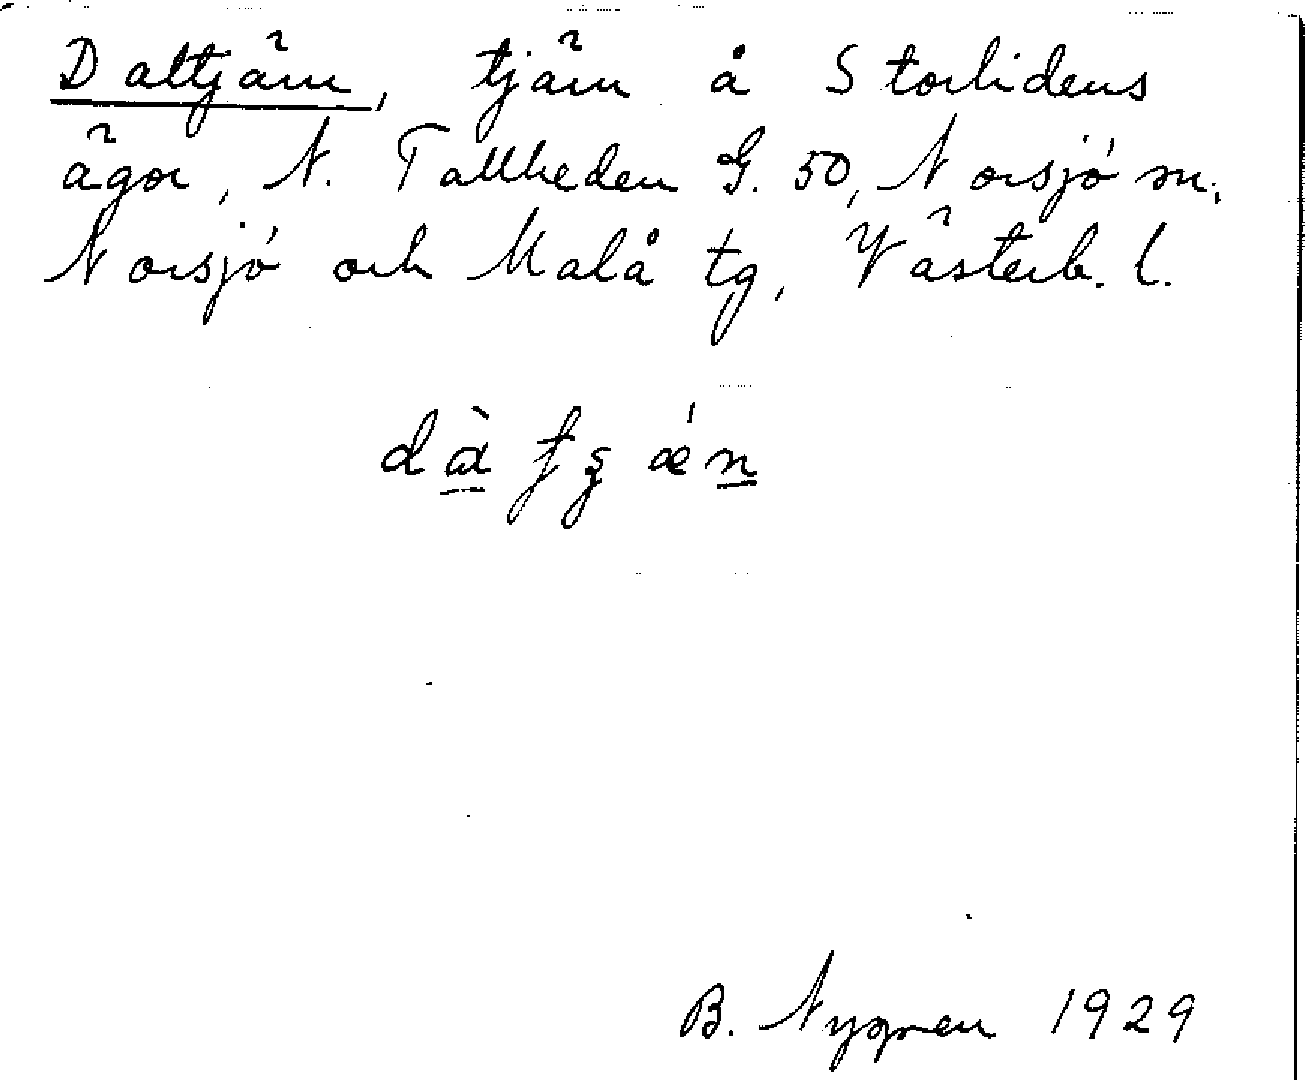 Daltjärn, tjärn å Storlidens
ägor, N. Tallheden G. 50, Norsjö sn,
Norsjö och Malå tg, Västerb. l.
B. Nygren 1929